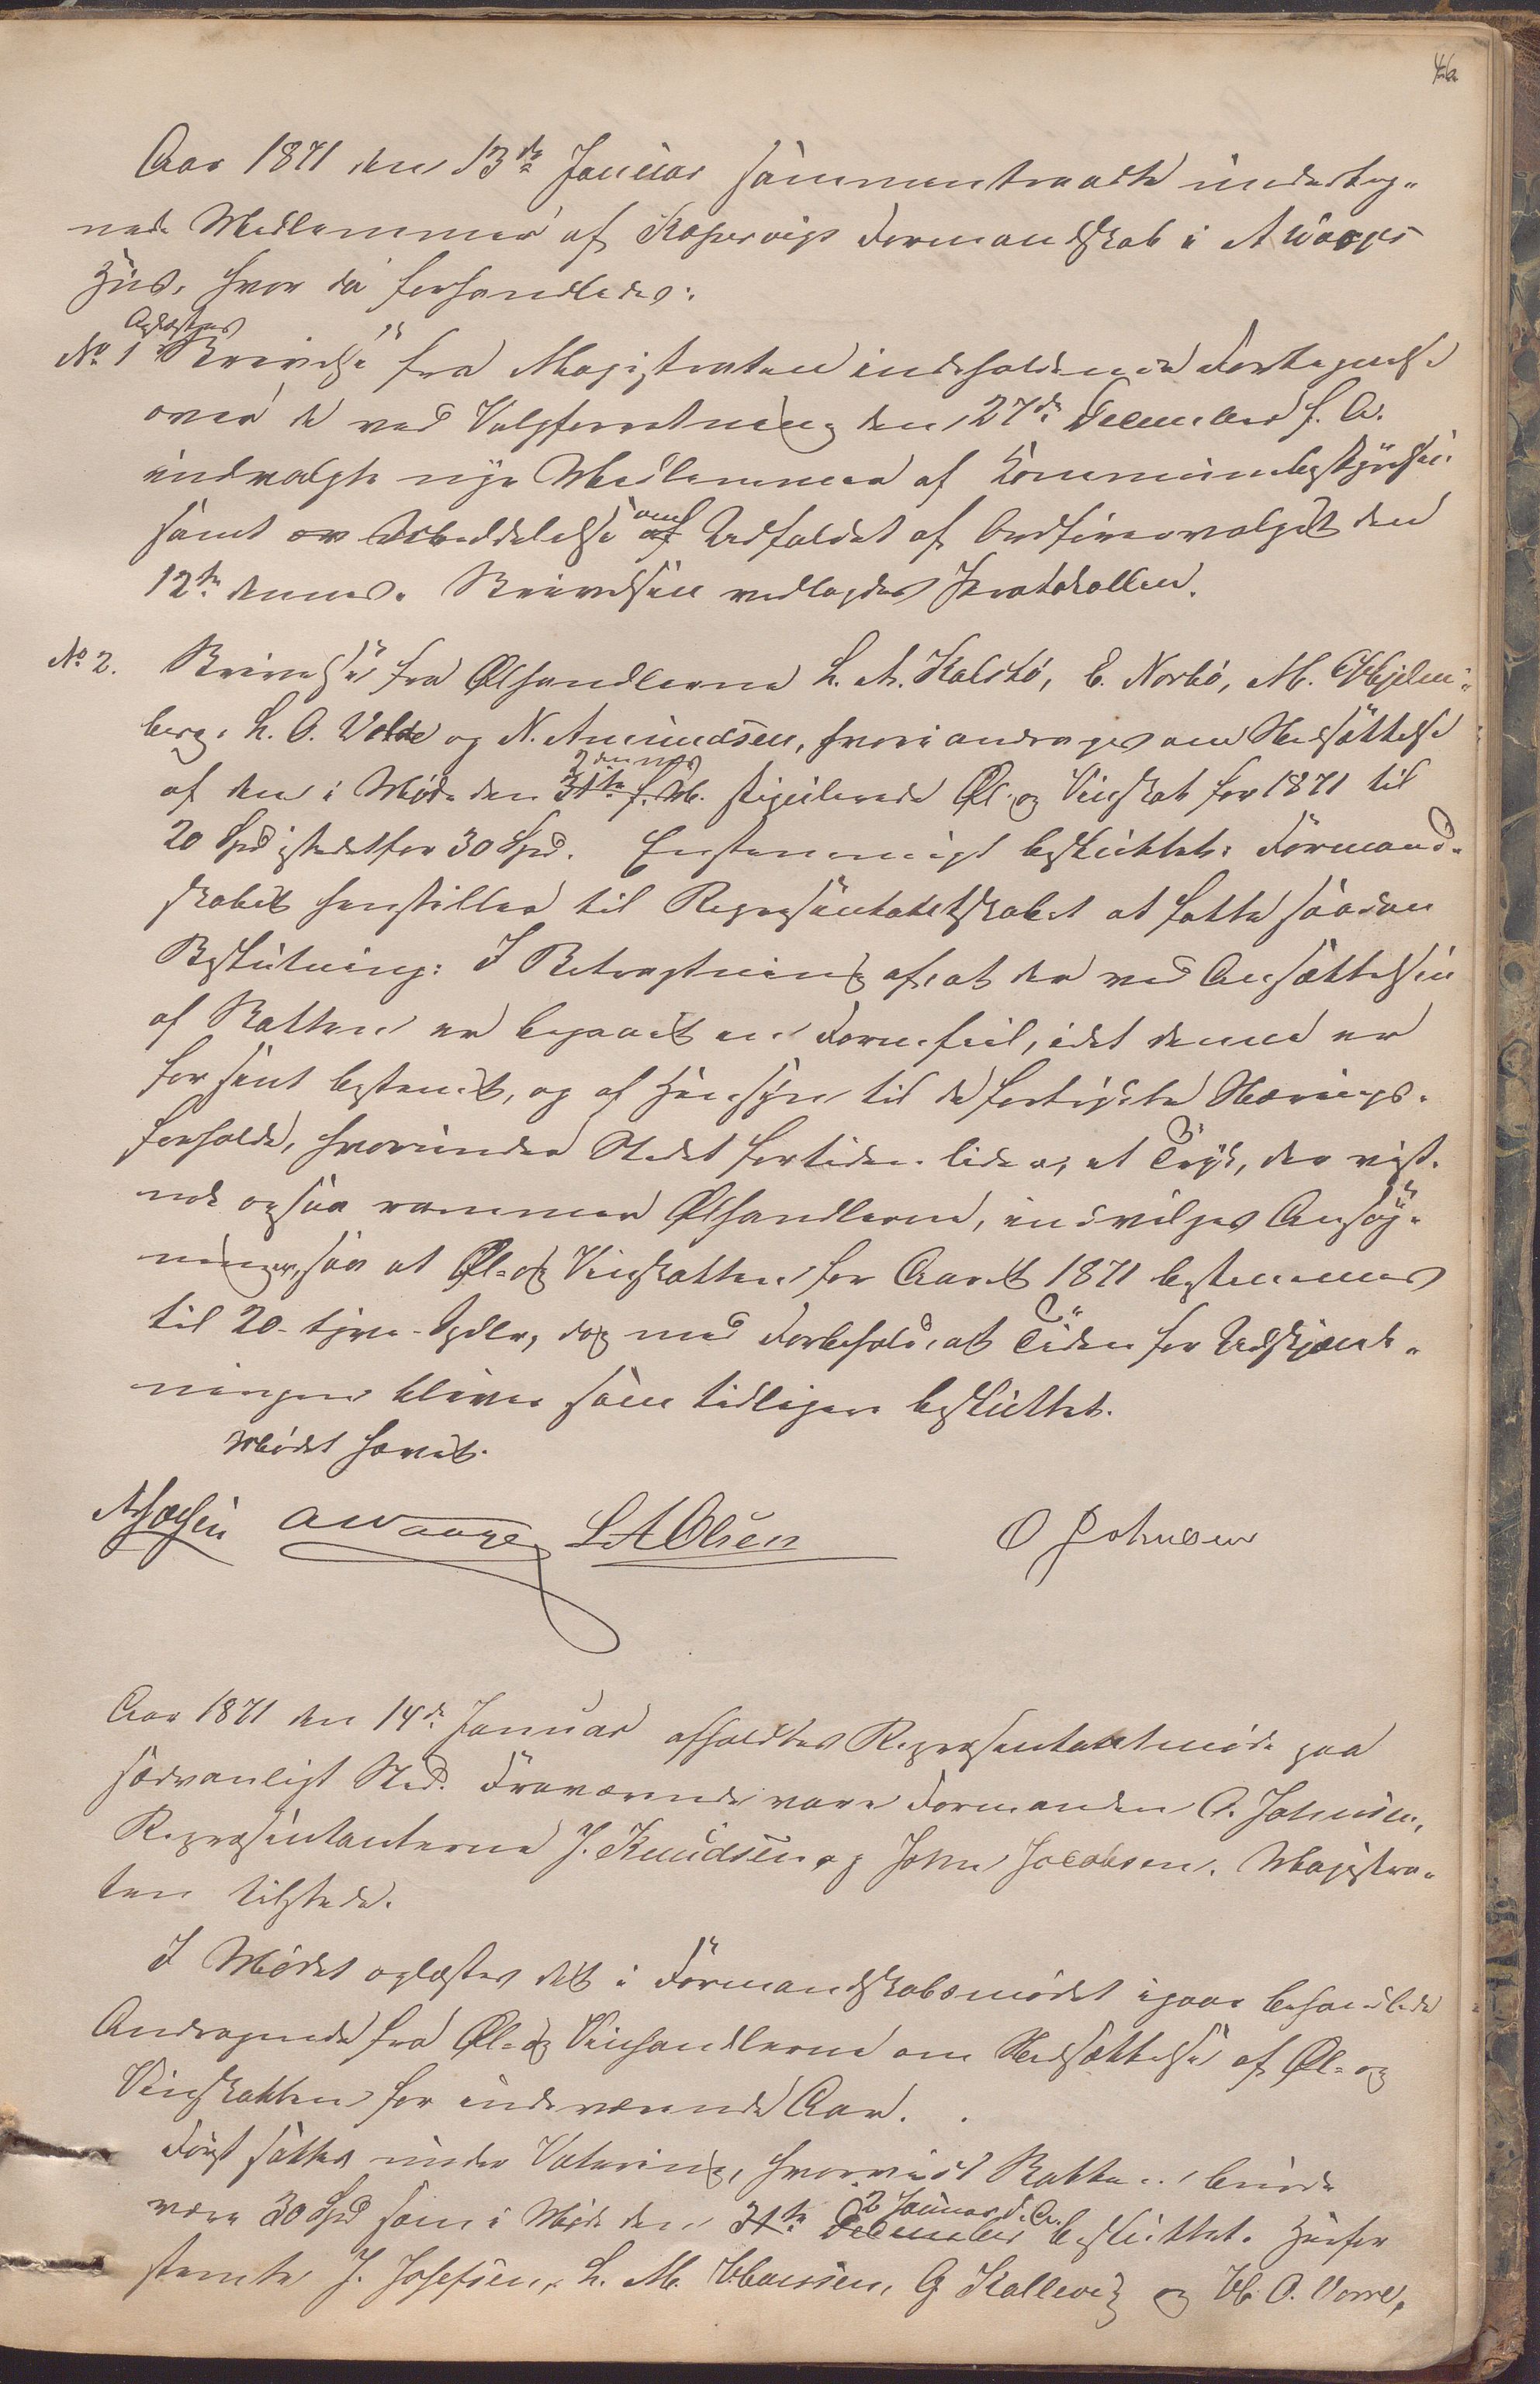 46
Aar 1871 den 13de Januar sammentraadte underteg-
nede Medlemmer af Kopervigs Formandskab i A Waages
Huus, hvor da forhandledes:
Oplæstes
No 1 Skrivelse fra Magistraten indeholdende Fortegnelse
over de ved Valgforretning den 27de December f. A.
indvalgte nye Medlemmer af Kommunebestyrelsen
samt en Meddelelse af om Udfaldet af Ordførervalget den
12te dennes. Skrivelsen vedlagdes Protokollen.
No 2. Skrivelse fra Ølhandlerne L. A. Kalstø, E. Norbø, M. Hjelm-
berg, L. O. Velde og N. Amundsen, hvori androges om Nedsættelse
2 dennes
af den i Møde den 31te f. M. stipulerede Øl- og Vinskat for 1871 til
20 Spd istedetfor 30 Spd. Enstemmigt besluttet: Formand-
skabet henstiller til Repræsentantskabet at fatte saadan
Beslutning: I Betragtning af, at der ved Ansættelsen
af Skatten er begaaet en Formfeil, idet denne er
for sent bestemt, og af Hensyn til de fortrykte Nærings-
forholde, hvorunder Stedet fortiden lider, et Tryk, der vist-
nok ogsaa rammer Ølhandlerne, indvilges Ansøg-
ningen, saa at Øl- og Vinskatten for Aaret 1871 bestemmes
til 20 - tyve - Spdlr, dog med Forbehold, at Tiden for Udskjænk-
ningen bliver som tidligere besluttet.
Mødet hævet.
A Waage L A Olsen O Johnsen
Aar 1871 den 14de Januar afholdtes Repræsentantmøde paa
sædvanligt Sted. Fraværende vare Formanden O. Johnsen,
Repræsentanterne J. Knudsen og John Jacobsen. Magistra-
ten tilstede.
I Mødet oplæstes det i Formandskabsmødet igaar behandlede
Andragende fra Øl- og Vinhandlerne om Nedsættelse af Øl- og
Vinskatten for indeværende Aar.
Først sattes under Votering, hvorvidt Skatten burde
2 Januar d. A.
være 30 Spd som i Møde den 31te December besluttet. Herfor
stemte J. Josefsen, L. M. Waussen, G Kallevig og W. O. Vorre,